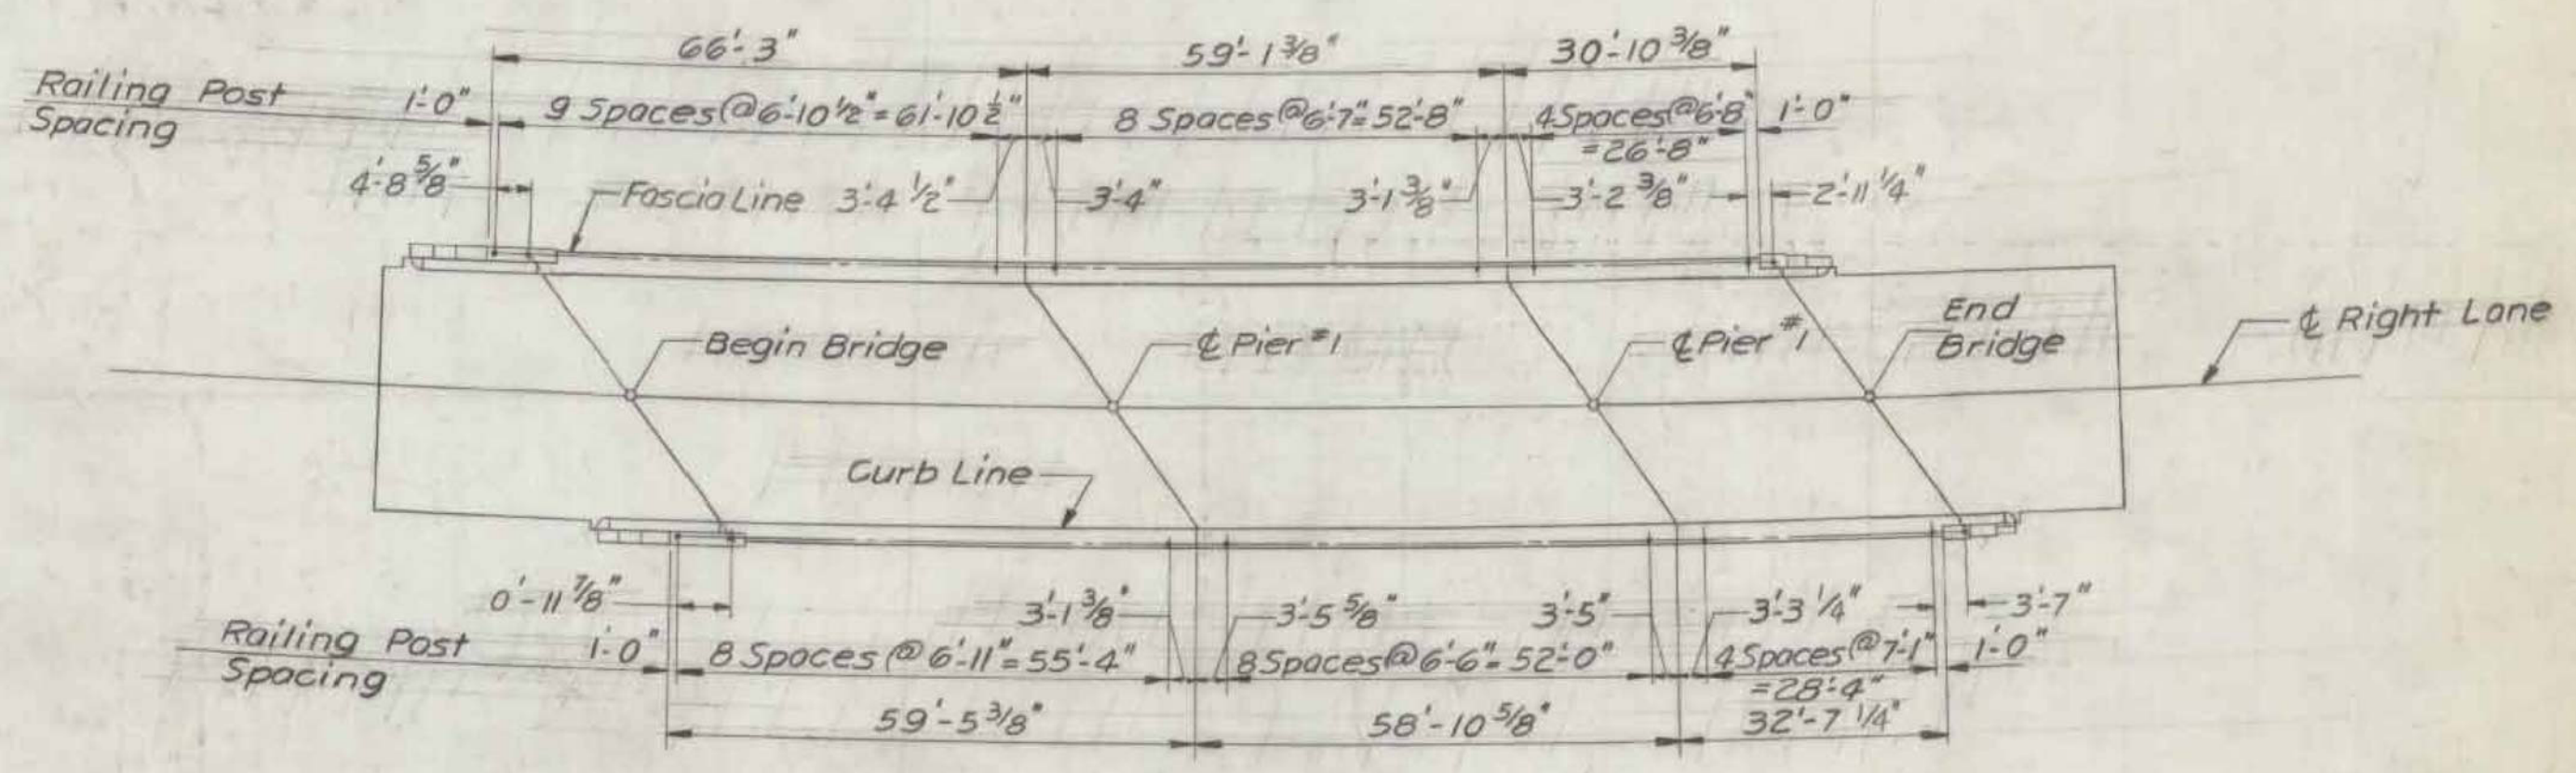 66'-3"
59'-1 3/8"
30'-10 3/8"
Railing Post
Spacing
1'-0"
9 Spaces @ 6'-10 1/2" = 61'-10 1/2"
8 Spaces @ 6'-7" = 52'-8"
4 Spaces @ 6'-8"
= 26'-8"
1'-0"
4'-8 5/8"
Fascia Line
3'-4 1/2"
3'-4"
3'-1 3/8"
3'-2 3/8"
2'-11 1/4"
Begin Bridge
℄ Pier #1
℄ Pier #1
End
Bridge
℄ Right Lane
Curb Line
0'-11 7/8"
3'-1 3/8"
3'-5 5/8"
3'-5"
3'-3 1/4"
3'-7"
Railing Post
Spacing
1'-0"
8 Spaces @ 6'-11" = 55'-4"
8 Spaces @ 6'-6" = 52'-0"
4 Spaces @ 7'-1"
= 28'-4"
1'-0"
59'-5 3/8"
58'-10 5/8"
32'-7 1/4"